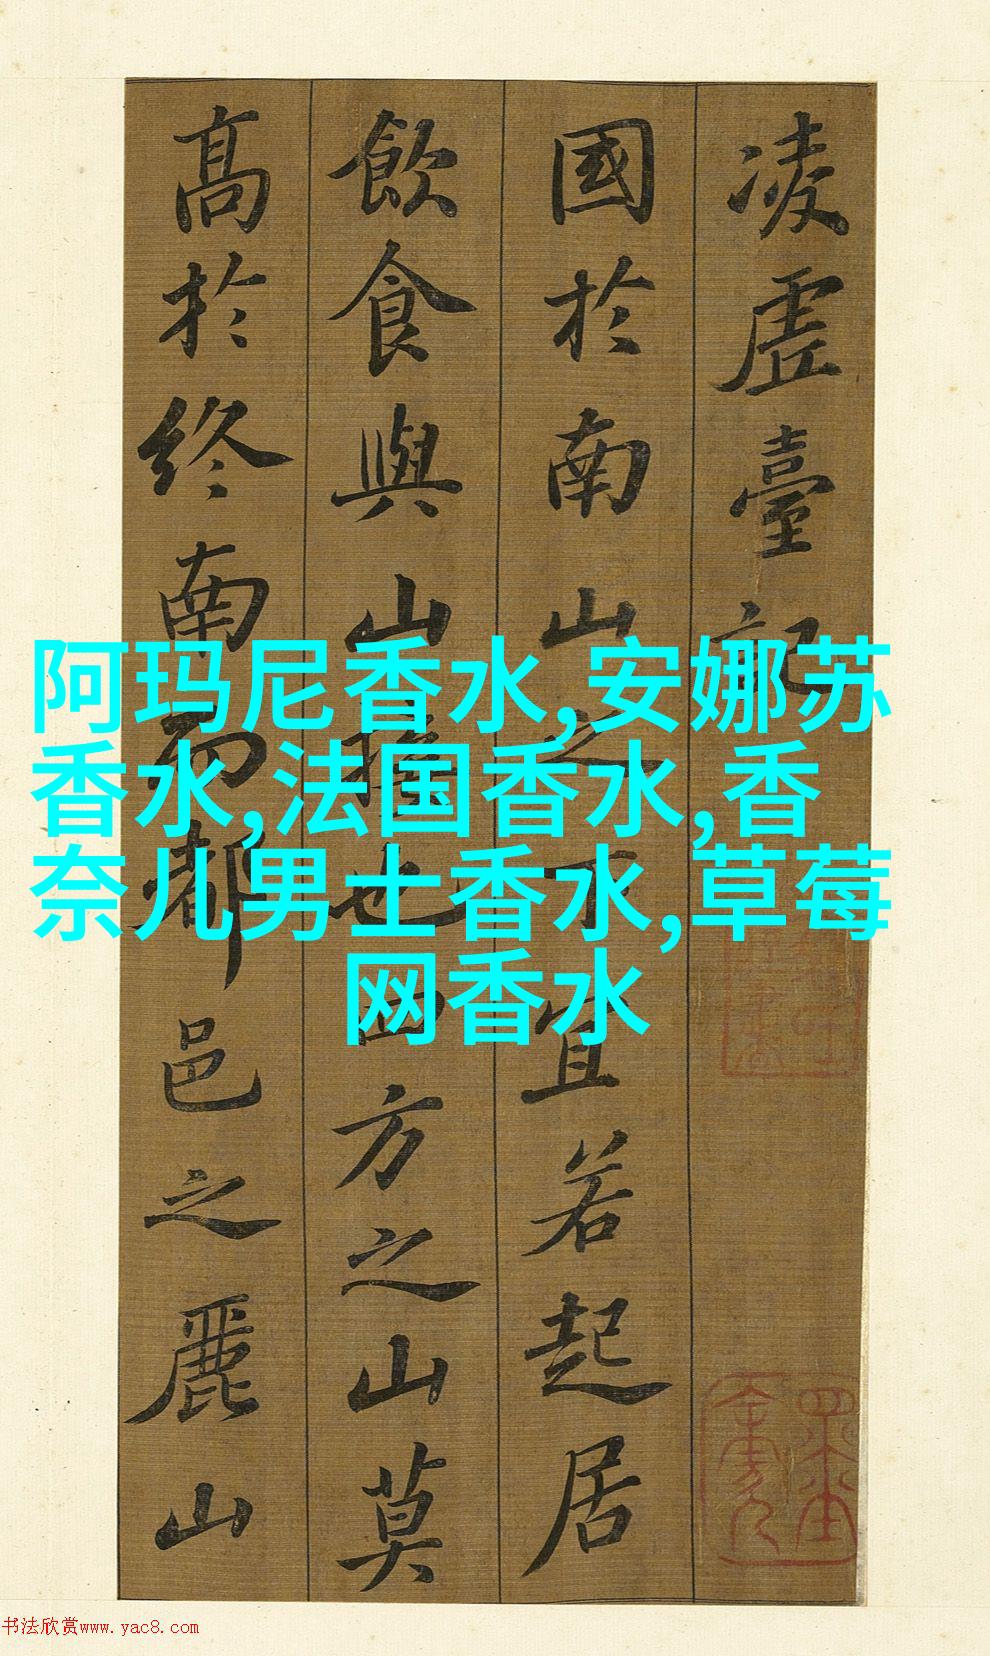 凌虛臺記
國於南山之下宜若起居
飲食與山接也四方之山莫
高於終南而都邑之麗山
阿玛尼香水,安娜苏
香水,法国香水,香
奈儿男士香水,草莓
网香水
书法欣赏www.yac8.com